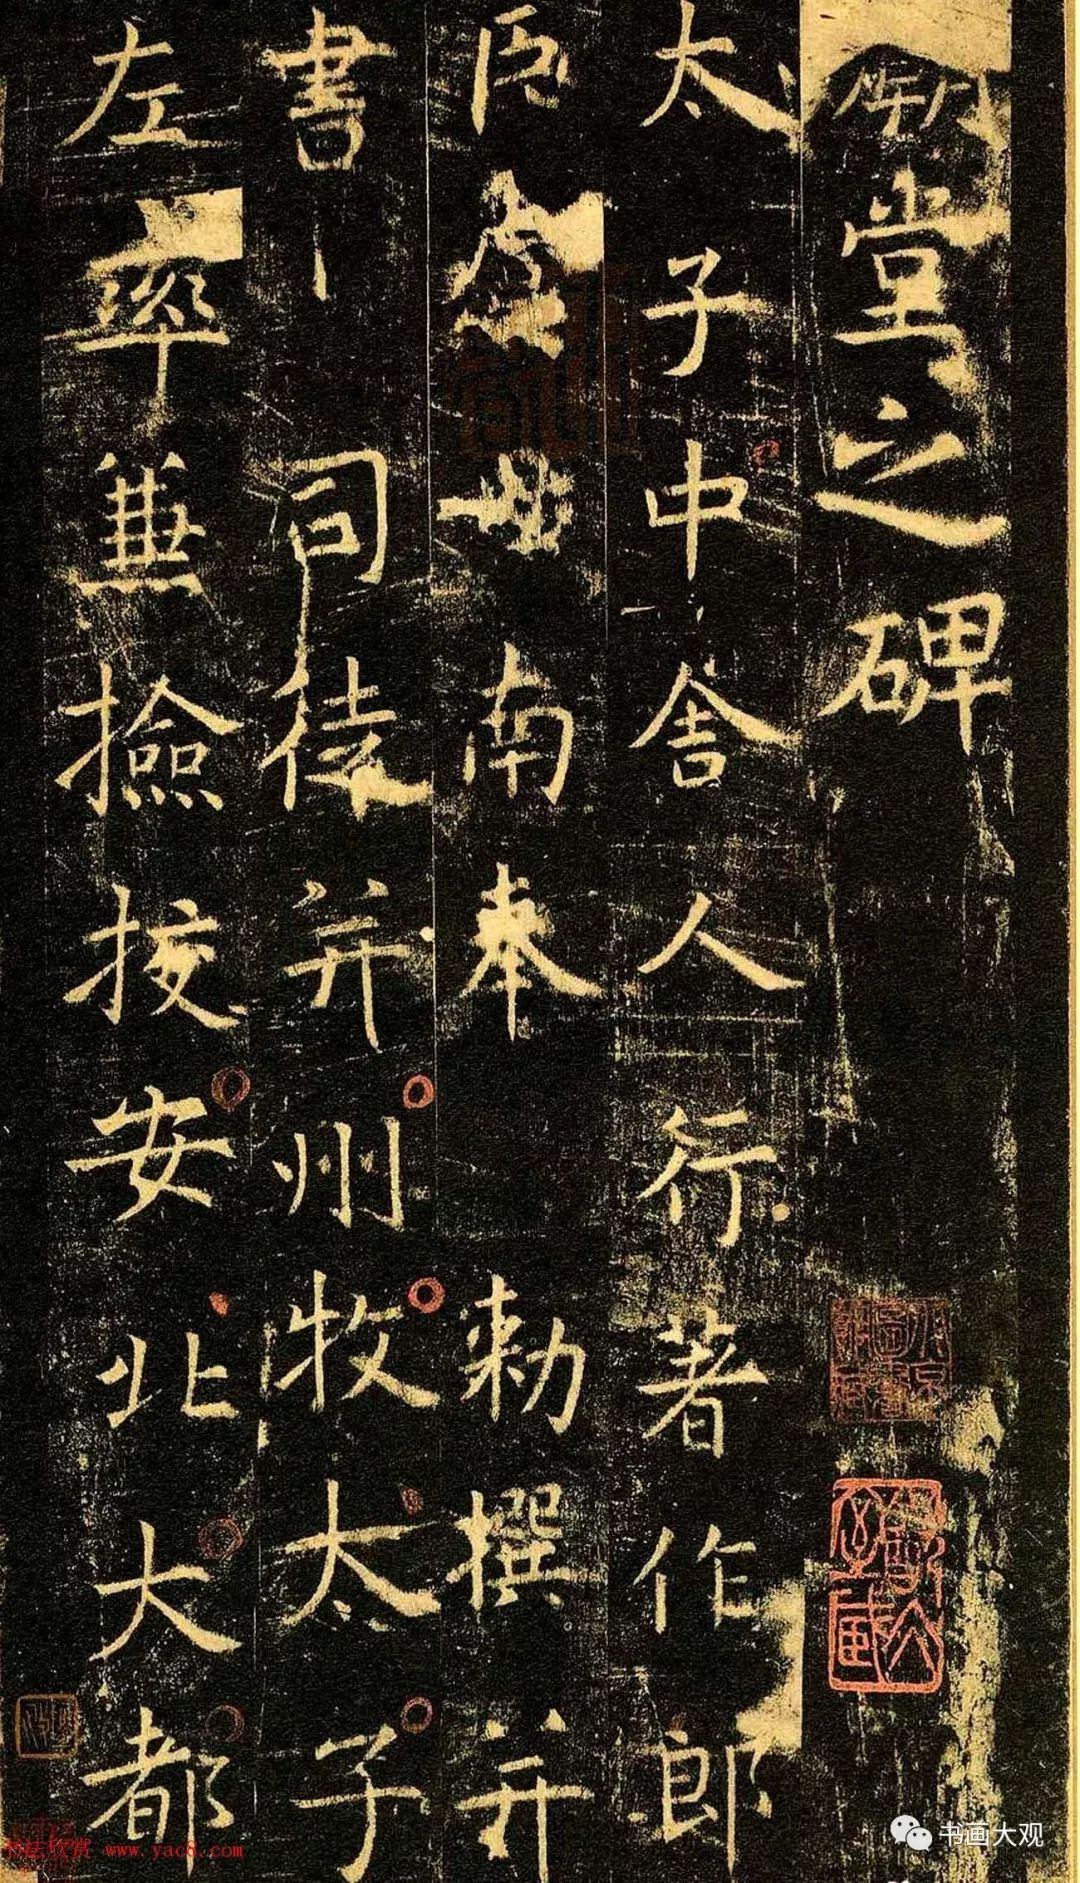 廟堂之碑
太子中舍人行著作郎
臣虞世南奉勅撰并
書司徒并州牧太子
左率兼撿挍安北大都
书画大观
书法欣赏 www.yac8.com